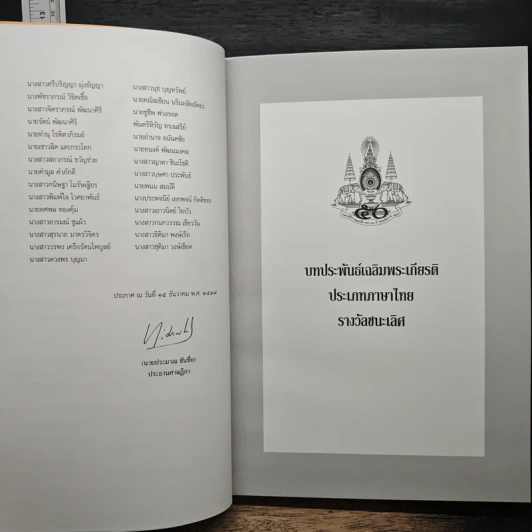 นางสาวศรีปริญญา มุ่งธัญญา
นางพัชราภรณ์ วิชิตเชื้อ
นางสาวจิตราภรณ์ พัฒนาศิริ
นายรัตน์ พัฒนาศิริ
นายทำนุ โรพิตาภิรมย์
นายเชาวลิต แตะกระโทก
นางสาวสถาภรณ์ ขวัญช่วย
นายคำมูล คำภักดี
นางสาวกนิษฐา
นางสาวพิมพ์ใจ โวคยาพันธ์
นายทศพล ทองคุ้ม
นางสาวอารมณ์ ชูแผ้ว
นางสาวสุรนาถ มาตรวิจิตร
นางสาววรพร เตรียรัตนไพบูลย์
นางสาวดวงพร บุญมา
นางสาวนุช บุญทรัพย์
นายคณิสเชียน
นายชูชีพ พ่วงรอด
พันตรีหิรัญ ทรงเสรีย์
นายอำนาจ อนันตชัย
นายทนงค์ พัฒนมงคล
นางสาวญาดา ชินะโชติ
นางสาวบุษศา ประพันธ์
นายพนม สมบัติ
นางประไพรณีย์ เอกพจน์
นางสาวเยาวนิตย์ ใยบัว
นางสาวกนกวรรณ เขียววัน
นางสาวธิติมา พงษ์เรือ
นางสาวชุติมา วงษ์เขียด
ประกาศ ณ วันที่ ๑๔ ธันวาคม พ.ศ. ๒๕๓๘
(นายประมาณ ชันซื่อ)
ประธานศาลฎีกา
๕๐
บทประพันธ์เฉลิมพระเกียรติ
ประเภทภาษาไทย
รางวัลชนะเลิศ
13